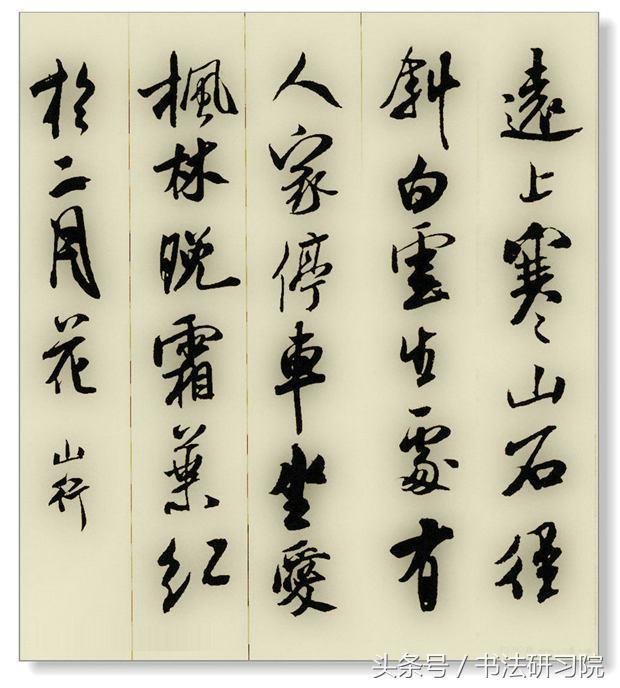 遠上寒山石徑
斜白雲生處有
人家停車坐愛
楓林晚霜葉紅
於二月花
山行
头条号 / 书法研习院